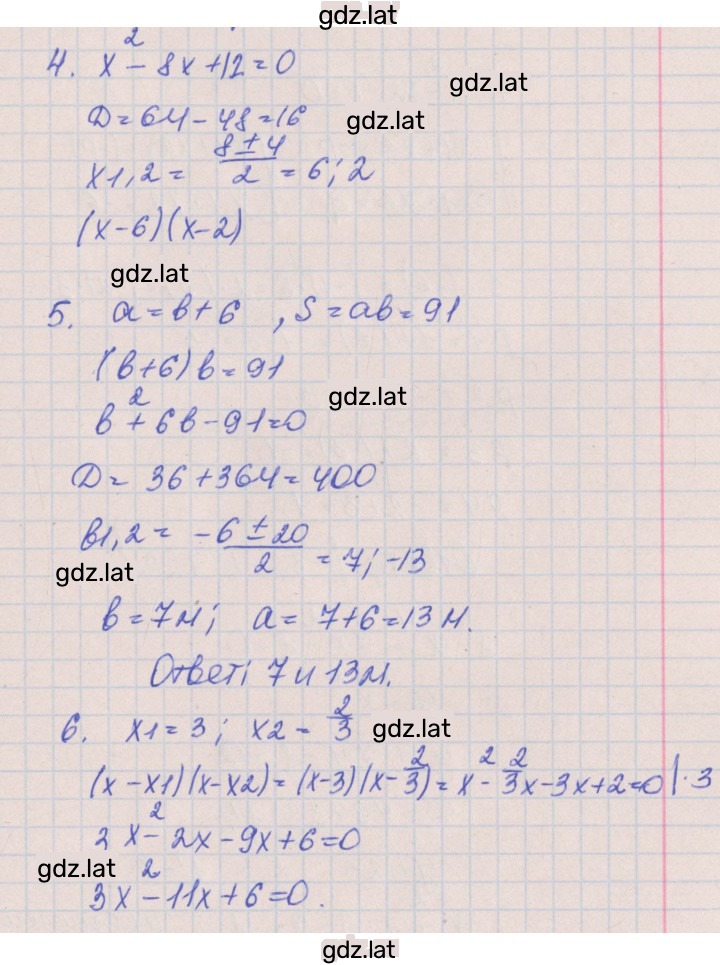 gdz.lat
4. x² - 8x + 12 = 0
gdz.lat
D = 64 - 48 = 16
gdz.lat
x1,2 = (8 ± 4)/2 = 6; 2
(x-6)(x-2)
gdz.lat
5. a = b + 6, S = ab = 91
(b+6) b = 91
gdz.lat
b² + 6b - 91 = 0
D = 36 + 364 = 400
b1,2 = (-6 ± 20)/2 = 7; -13
gdz.lat
b = 7м; a = 7 + 6 = 13 м.
Ответ: 7 и 13м.
6. x1 = 3; x2 = 2/3
gdz.lat
(x - x1)(x - x2) = (x-3)(x - 2/3) = x² - 2/3x - 3x + 2 = 0 |·3
2x² - 2x - 9x + 6 = 0
gdz.lat
3x² - 11x + 6 = 0.
gdz.lat